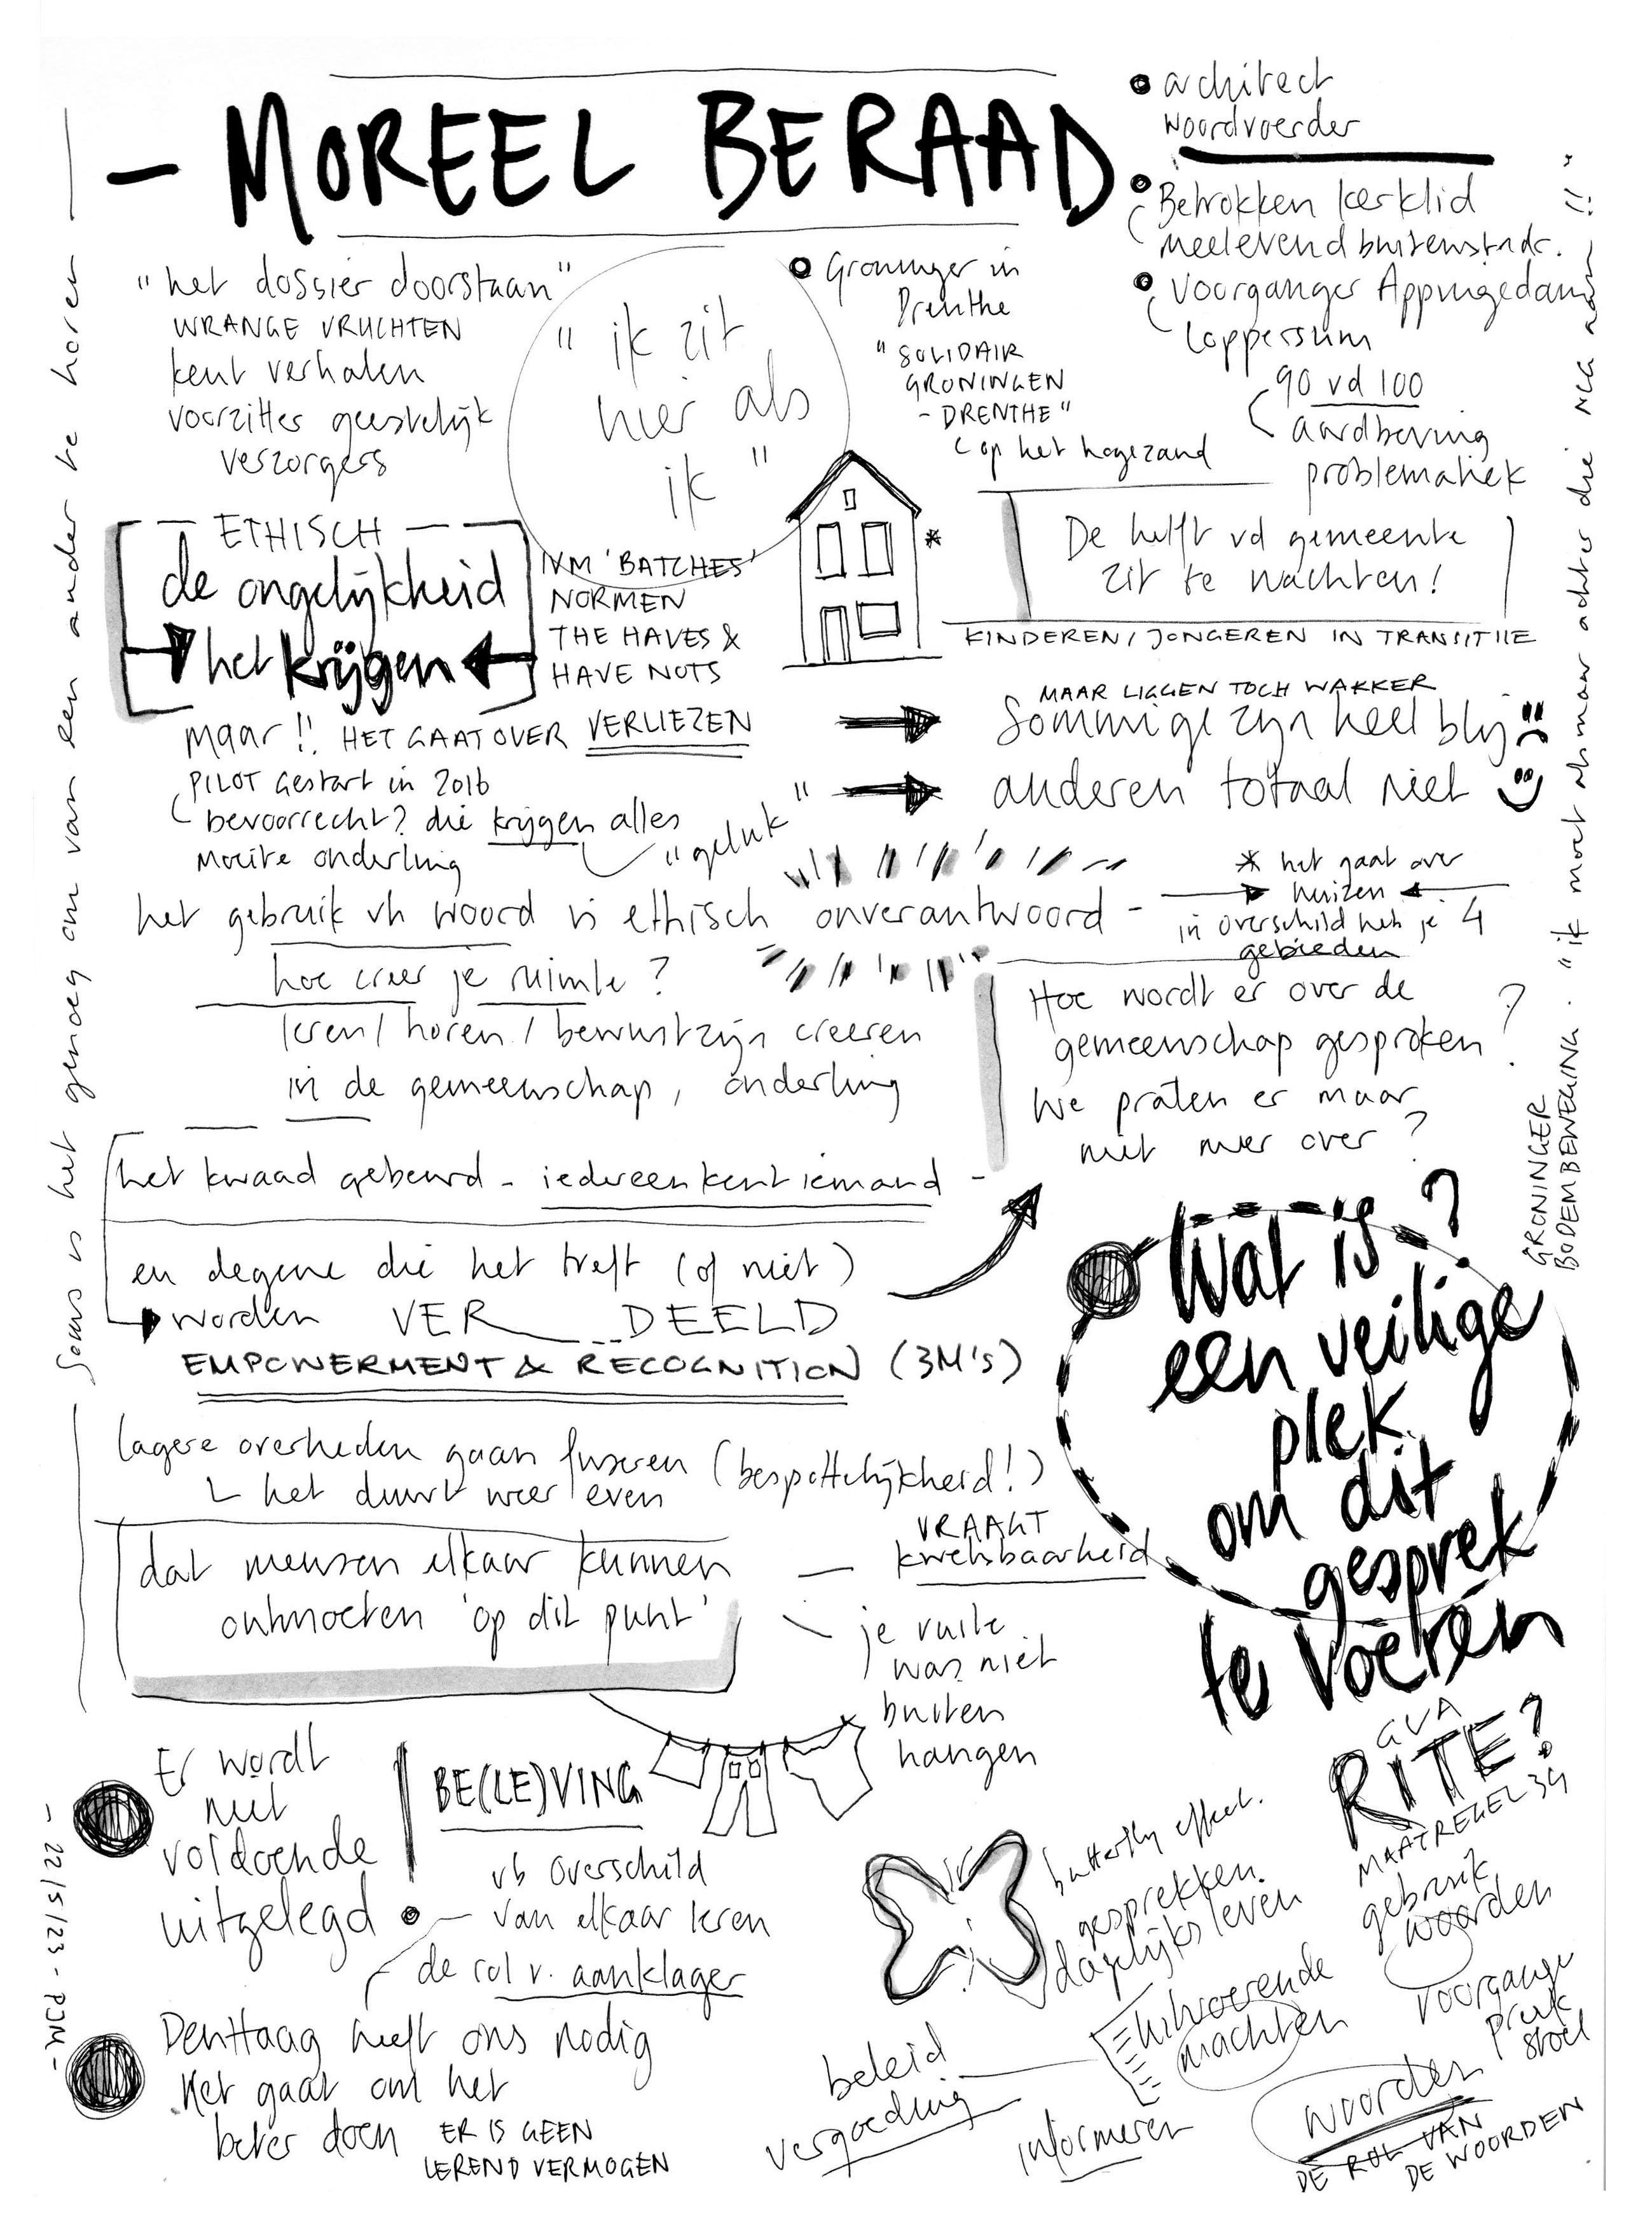 - MOREEL BERAAD
• architect
woordvoerder
• Betrokken kerklid
meelevend buitenstadr.
• voorganger Appingedam
Loppersum
90 vd 100
aardbeving
problematiek
"het dossier doorstaan"
WRANGE VRUCHTEN
kent verhalen
voorzitter geestelijk
verzorgers
"ik zit
hier als
ik"
• Groninger in
Drenthe
"SOLIDAIR
GRONINGEN
- DRENTHE"
op het hogezand
- ETHISCH -
de ongelijkheid
het krijgen
IVM 'BATCHES'
NORMEN
THE HAVES &
HAVE NOTS
*
De helft vd gemeente
zit te wachten!
KINDEREN/JONGEREN IN TRANSITIE
maar!! HET GAAT OVER VERLIEZEN
PILOT Gestart in 2016
bevoorrecht? die krijgen alles
Moeite onderling
"geluk"
MAAR LIGGEN TOCH WAKKER
Sommige zijn heel blij
anderen totaal niet
het gebruik vh woord is ethisch onverantwoord -
* het gaat over
huizen
in overschild heb je 4
gebieden
hoe creer je ruimte?
leren/horen/bewustzijn creeren
in de gemeenschap, onderling
Hoe wordt er over de
gemeenschap gesproken?
We praten er maar
niet meer over?
het kwaad gebeurd - iedereen kent iemand -
en degene die het treft (of niet)
worden VER___DEELD
EMPOWERMENT & RECOGNITION (3M'S)
Wat is?
een veilige
plek
om dit
gesprek
te voeren
lagere overheden gaan fuseren (bespottelijkheid!)
het duurt weer even
dat mensen elkaar kunnen
ontmoeten 'op dit punt'
- VRAAGT
kwetsbaarheid
je vuile
was niet
buiten
hangen
Er wordt
niet
voldoende
uitgelegd
BE(LE)VING
vb Overschild
van elkaar leren
de rol v. aanklager
Den Haag heeft ons nodig
Het gaat om het
beter doen
ER IS GEEN
LEREND VERMOGEN
butterfly effect.
gesprekken
dagelijks leven
GVA
RITE?
MAATREGEL 34
gebruik
woorden
voorganger
preek
stoel
Uitvoerende
machten
beleid
vergoeding
informeren
woorden
DE ROL VAN
DE WOORDEN
Soms is het genoeg om van een ander te horen
- WCJ - PCM - 22/5/23 -
GRONINGER
BODEM BEWEGING. "ik moet alsmaar achter die NCG aan!!"